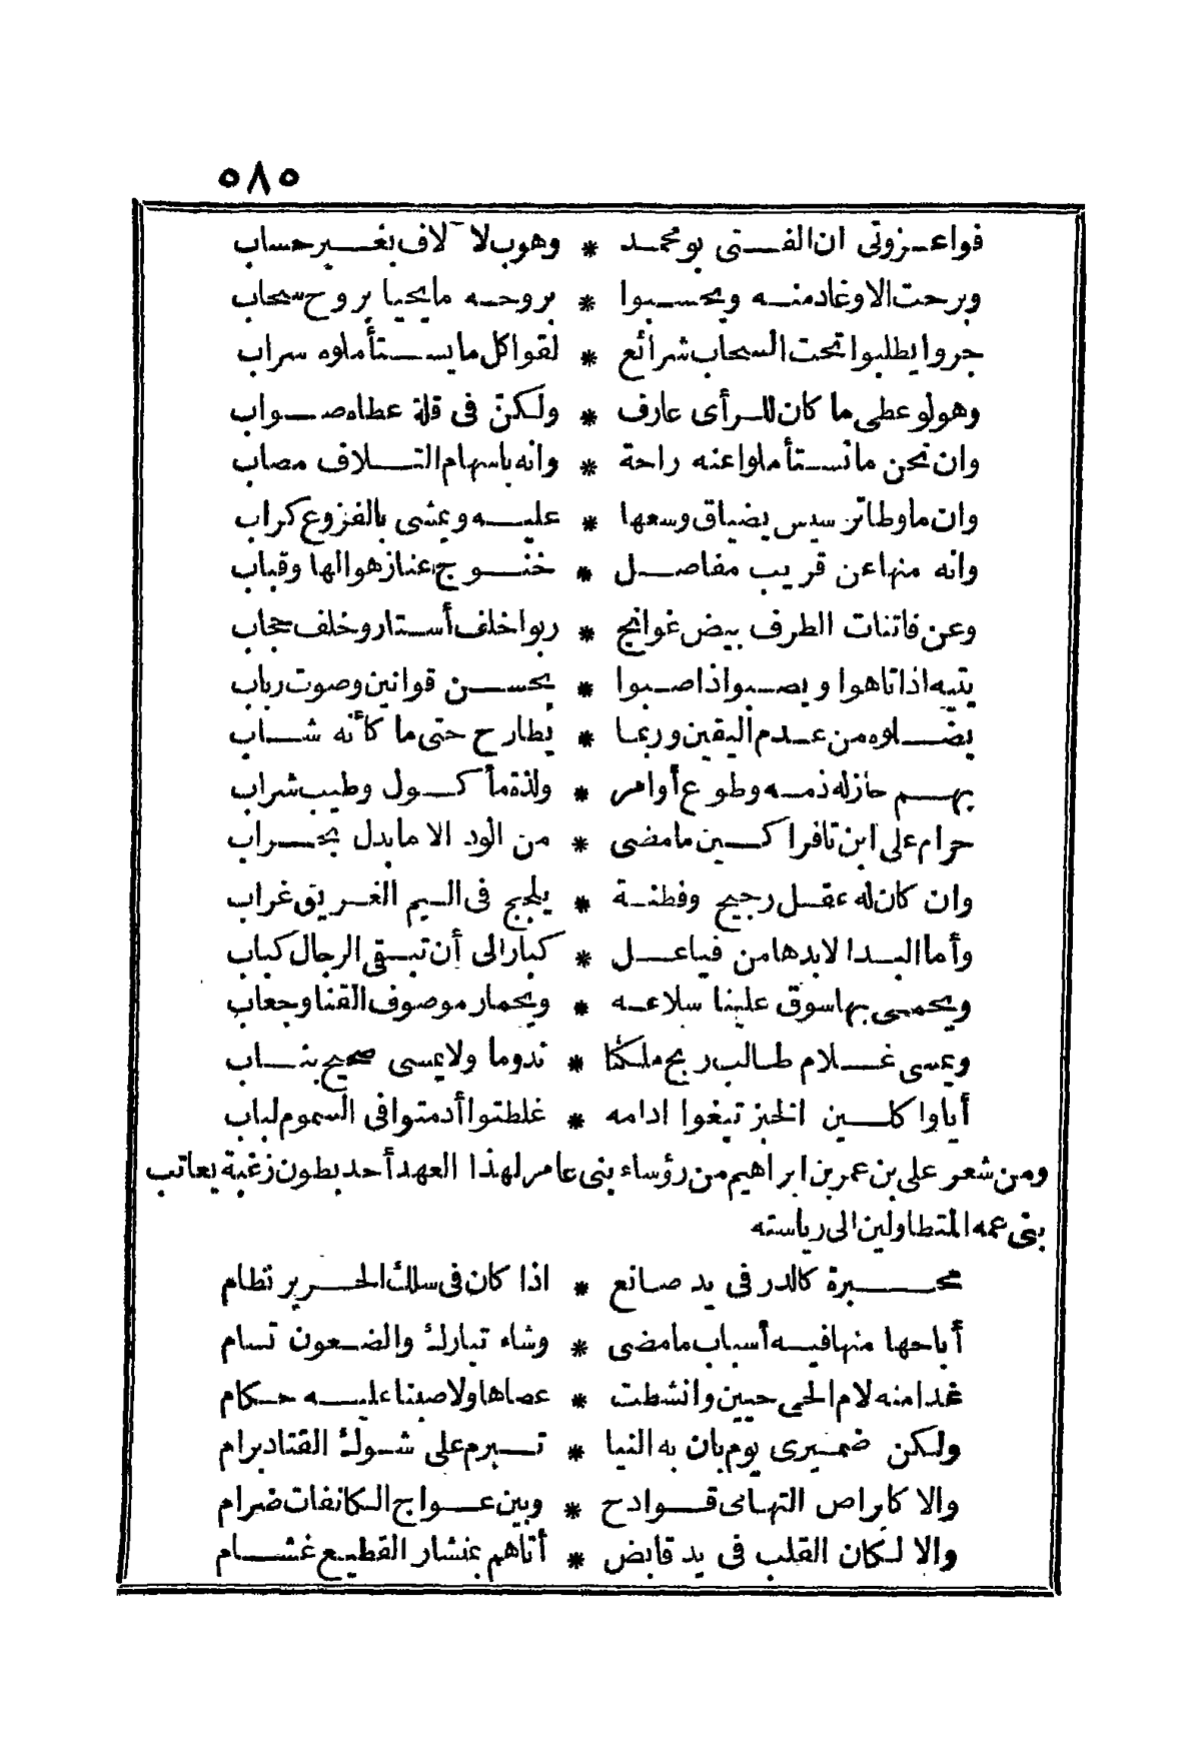 ٥٨٥
فواعزوتى ان الفتى بو محمد * وهوب لا لاف بغير حساب
وبرحت الاوغاد منه ويحسبوا * بروحه ما يحيا بروح سحاب
جروا يطلبوا تحت السحاب شرائع * لقوا كل ما يستأملوه سراب
وهو لو عطى ما كان للرأى عارف * ولكن فى قلة عطاه صواب
وان نحن ما نستأملوا عنه راحة * وانه باسهام التلاف مصاب
وان ما وطا ترسيس يضياق وسعها * عليه ويمشى بالفزوع كراب
وانه منها عن قريب مفاصل * خنوج عناز هوالها وقباب
وعن فاتنات الطرف بيض غوانج * ربوا خلف أستار وخلف حجاب
يتيه اذا تاهوا ويصبو اذا صبوا * بحسن قوانين وصوت رباب
يضلوه من عدم اليقين وربما * يطارح حتى ما كأنه شاب
بهم حازله ذمه وطوع أوامر * ولذة مأكول وطيب شراب
حرام على ابن تافراكين ما مضى * من الود الا ما بدل بحراب
وان كان له عقل رجيح وفطنة * يلجج فى اليم الغريق غراب
وأما البدا لابدها من فياعل * كبار الى أن تبقى الرجال كباب
ويحمى بها سوق علينا سلاعه * ويحمار موصوف القنا وجعاب
ويمسى غلام طالب ريح ملكنا * ندوما ولا يمسى صحيح بناب
أياوا كلين الخبز تبغوا ادامه * غلطتوا أدمتوا فى السموم لباب
ومن شعر على بن عمر بن ابراهيم من رؤساء بنى عامر لهذا العهد أحد بطون زغبة يعاتب
بنى عمه المتطاولين الى رياسته
محبرة كالدر فى يد صانع * اذا كان فى سلك الحرير نظام
أباحها منها فيه أسباب ما مضى * وشاء تبارك والضعون تسام
غدا منه لام الحى حيين وانشطت * عصاها ولا صبنا عليه حكام
ولكن ضميرى يوم بان به النيا * تبرم على شوك القتاد برام
والا كابراص التهامى قوادح * وبين عواج الكانفات ضرام
والا لكان القلب فى يد قابض * أتاهم بمنشار القطيع غشام